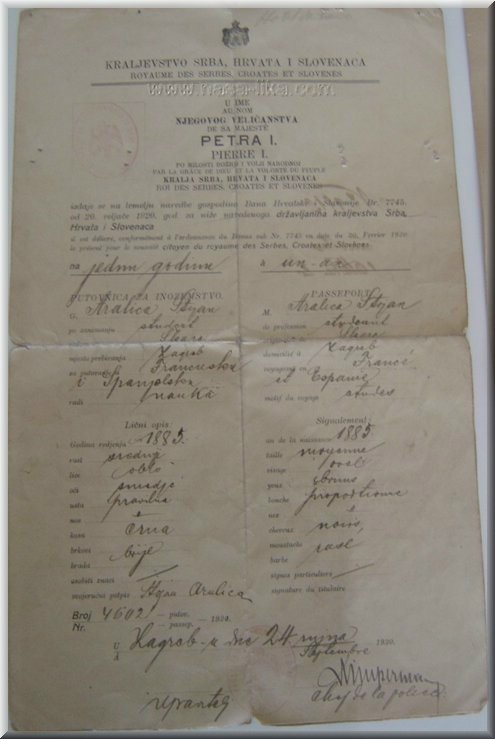 KRALJEVSTVO SRBA, HRVATA I SLOVENACA
ROYAUME DES SERBES, CROATES ET SLOVÈNES
U IME
AU NOM
NJEGOVOG VELIČANSTVA
DE SA MAJESTÉ
PETRA I.
PIERRE I.
PO MILOSTI BOŽJOJ I VOLJI NARODNOJ
PAR LA GRÂCE DE DIEU ET LA VOLONTÉ DU PEUPLE
KRALJA SRBA, HRVATA I SLOVENACA
ROI DES SERBES, CROATES ET SLOVÈNES
izdaje se na temelju naredbe gospodina Bana Hrvatske i Slavonije Br. 7745.
od 20. 1920. za niže navedenoga državljanina kraljevstva Srba,
Hrvata i Slovenaca
il est délivré, conformément à l'ordonnance du Banus sub Nr. 7745 en date du 20. Février 1920
le présent pour le susnommé citoyen du royaume des Serbes, Croates et Slovènes
na jednu godinu
à un an
PUTOVNICA ZA INOZEMSTVO.
G. Aralica Stojan
po zanimanju student
mjesto prebivanja Zagreb
na putovanju Francusku
i Španjolsku
radi nauka
PASSEPORT
M. Aralica Stojan
de profession student
domicilié à Zagreb
voyageant en France
et Espanie
motif du voyage studes
Lični opis:
Godina rodjenja 1883.
rast srednji
lice
oči smedje
usta pravilna
nos
kosa crna
brkovi brije
brada
osobiti znaci
svojeručni potpis Stojan Aralica
Signalement:
an de la naissance 1883
taille moyenne
visage ovale
yeux
bouche
nez
cheveux noirs
moustache rase
barbe
signes particuliers
signature du titulaire
Broj 4602 – putov. – 1920.
Nr. – passep.
U Zagreb-u dne 24. rujna 1920.
À Septembre
chef de la police
www.nasa-lika.com